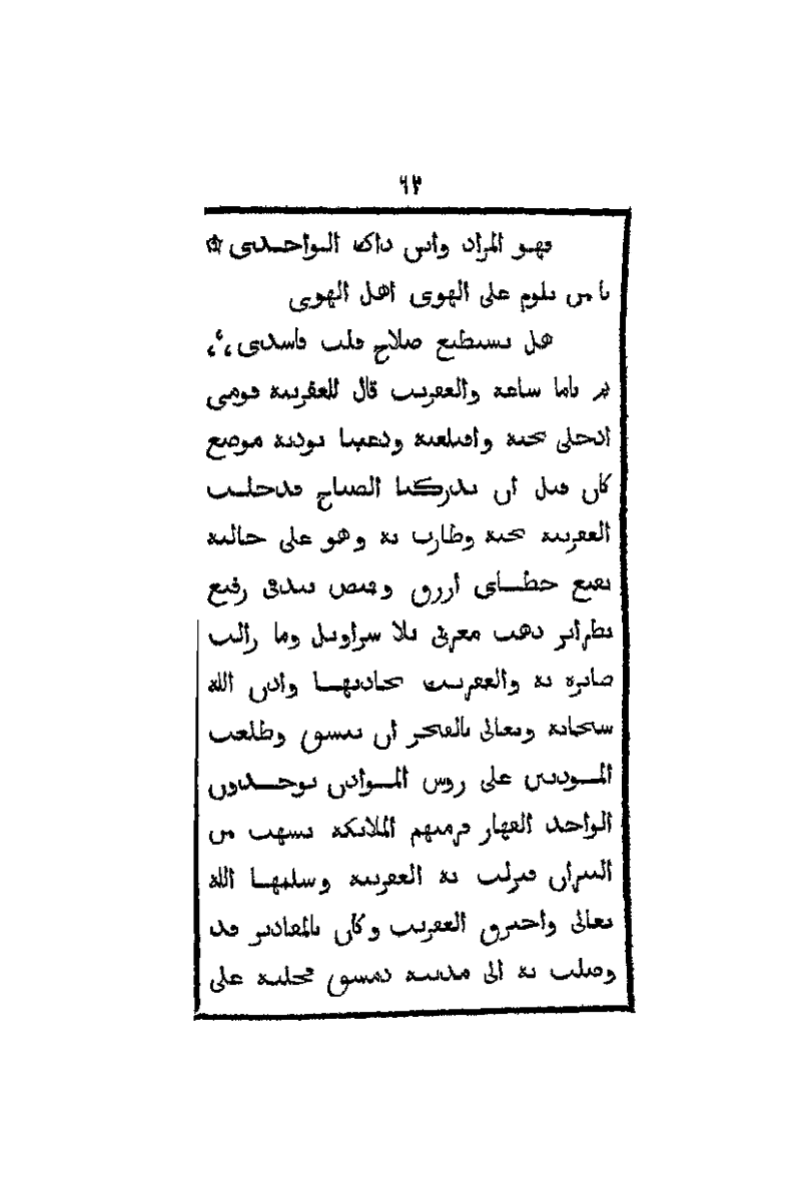 فهو المراد وانت ذاك الواحدى
يا من يلوم على الهوى اهل الهوى
هل تستطيع صلاح قلب فاسدى
ثم ناما ساعة والعفريت قال للعفريتة قومى
ادخلى تحته واقلعيه ودعينا نوديه موضع
كان قبل ان يدركنا الصباح فدخلت
العفريتة تحته وطارت به وهو على حالته
بقبع خطاى ازرق وقميص بندقى رفيع
بطراز ذهب معرق بلا سراويل وما زالت
صايرة به والعفريت تحاديها واذن الله
سبحانه وتعالى بالفجر ان ينشق وطلعت
المودنين على روس الموادن يوحدون
الواحد القهار فرميهم الملائكة بشهب من
النيران فنزلت به العفريتة وسلمها الله
تعالى واحترق العفريت وكان بالمقادير قد
وصلت به الى مدينة دمشق فخلته على